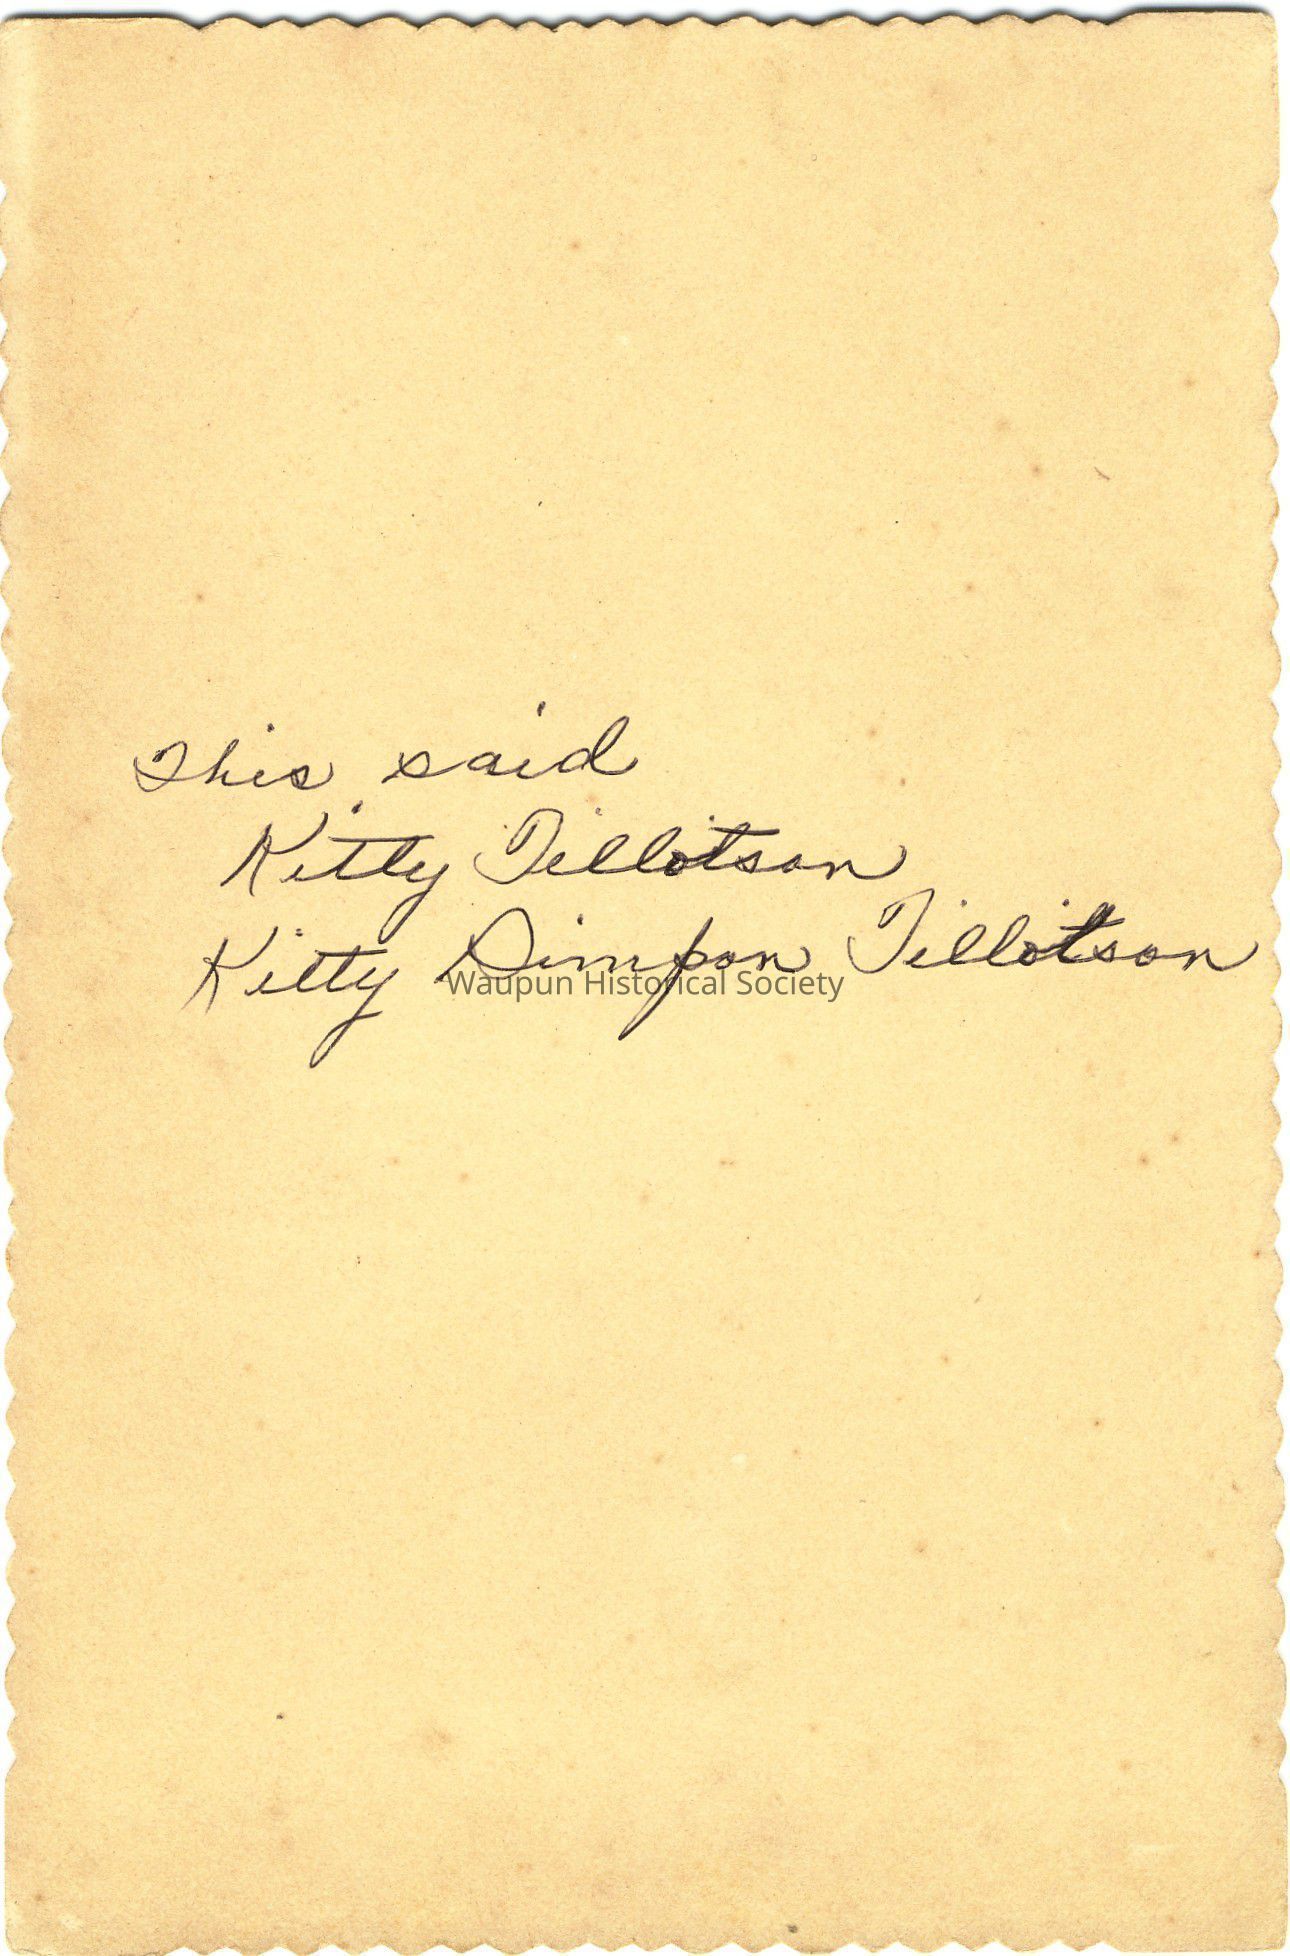 This said
Kitty Tillotson
Kitty Simpson Tillotson
Waupun Historical Society